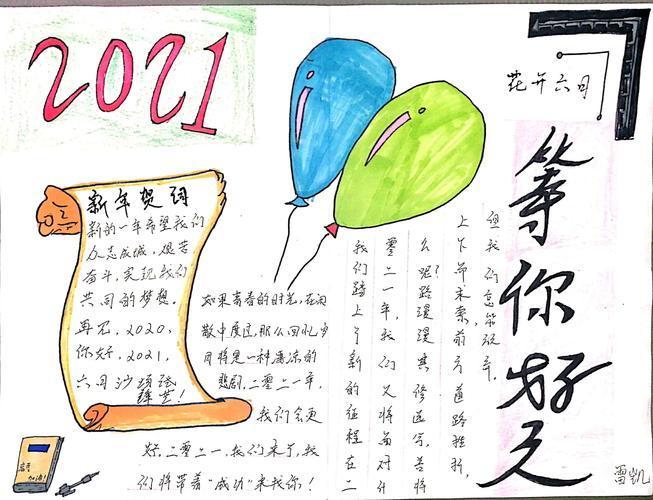 2021
花开六月
等你好久
新年贺词
新的一年希望我们
众志成城,艰苦
奋斗,实现我们
共同的梦想。
再见,2020,
你好,2021,
六月沙
如果青春的时光,在闲
散中度过,那么回忆岁
月将是一种凄凉的
悲剧,二零二一年,
我们会更
好,二零二一,我们来了,我
们将带着“成功”来找你!
我们踏上了新的征程在二
零二一年,我们又将面对什
么呢?路漫漫其修远兮,将
上下而求索,前方道路挫折,
但我们怎能说弃,
雷凯